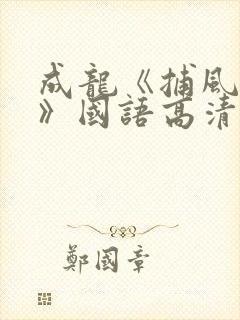 成龍《捕風
》國語高清
鄭國章